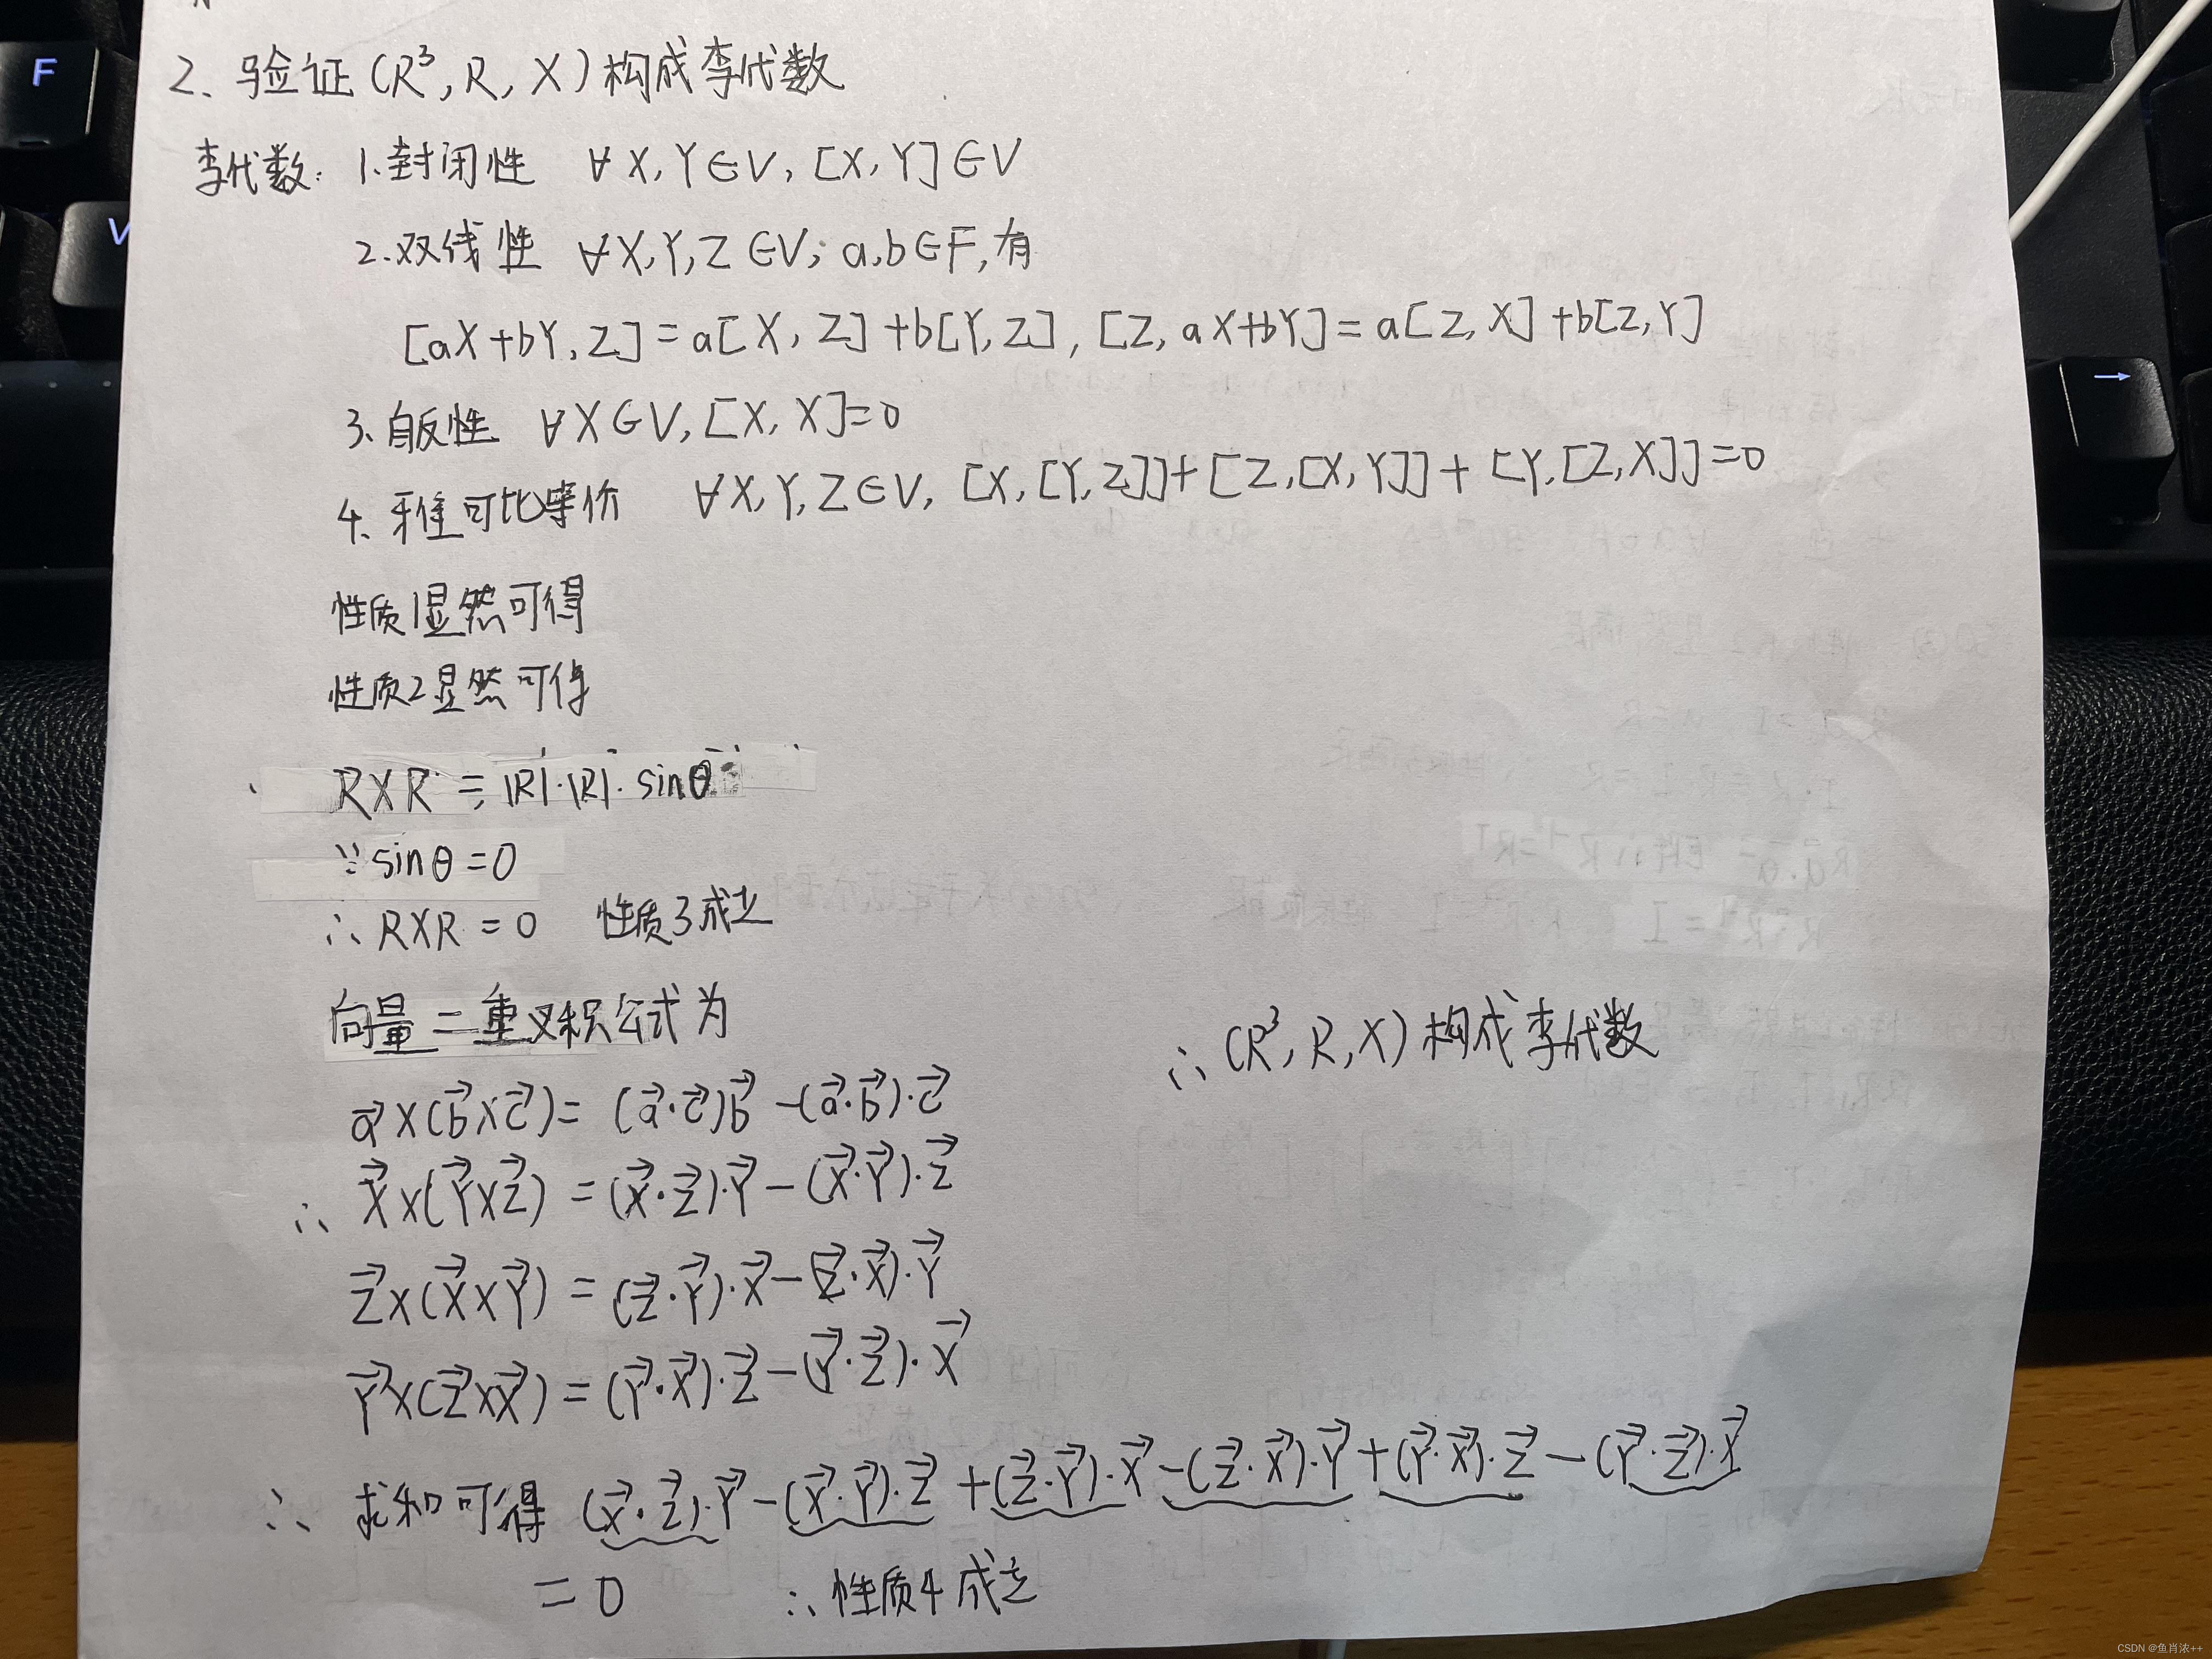 2、验证(R³, R, X)构成李代数
李代数: 1.封闭性 ∀X,Y∈V, [X,Y]∈V
2.双线性 ∀X,Y,Z∈V; a,b∈F,有
[aX+bY,Z]=a[X,Z]+b[Y,Z], [Z,aX+bY]=a[Z,X]+b[Z,Y]
3、自反性 ∀X∈V, [X,X]=0
4、雅可比等价 ∀X,Y,Z∈V, [X,[Y,Z]]+[Z,[X,Y]]+[Y,[Z,X]]=0
性质1显然可得
性质2显然可得
R×R=|R|·|R|·sinθ
∵sinθ=0
∴R×R=0 性质3成立
向量二重叉积公式为
∴(R³, R, X)构成李代数
a⃗×(b⃗×c⃗)=(a⃗·c⃗)b⃗-(a⃗·b⃗)·c⃗
∴ X⃗×(Y⃗×Z⃗)=(X⃗·Z⃗)·Y⃗-(X⃗·Y⃗)·Z⃗
Z⃗×(X⃗×Y⃗)=(Z⃗·Y⃗)·X⃗-(Z⃗·X⃗)·Y⃗
Y⃗×(Z⃗×X⃗)=(Y⃗·X⃗)·Z⃗-(Y⃗·Z⃗)·X⃗
∴ 求和可得 (X⃗·Z⃗)·Y⃗-(X⃗·Y⃗)·Z⃗+(Z⃗·Y⃗)·X⃗-(Z⃗·X⃗)·Y⃗+(Y⃗·X⃗)·Z⃗-(Y⃗·Z⃗)·X⃗
=0 ∴性质4成立
F
V
→
CSDN @鱼肖浓++